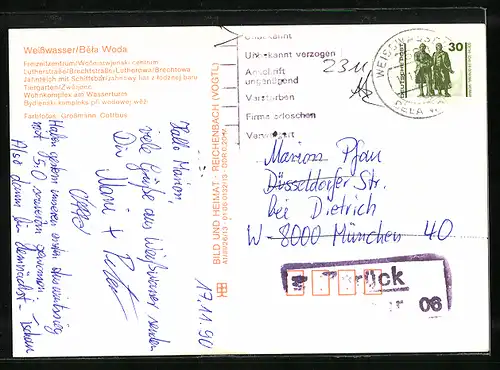 Weißwasser/Běła Woda
Freizeitzentrum/Wólnočasnjenski centrum
Lutherstraße/Brechtstraße-Lutherowa/Brechtowa
Jahnteich mit Schiffebar/Jahnowy hat z łódźnej baru
Tiergarten/Zwěrjenc
Wohnkomplex am Wasserturm
Bydlenski kompleks při wodowej wěži
Farbfotos: Großmann, Cottbus
BILD UND HEIMAT · REICHENBACH (VOGTL)
Unbekannt
Unbekannt verzogen
Anschrift
ungenügend
Verstorben
Firma erloschen
Verweigert
23 11
WEISSWASSER
BĚŁA WODA
30
Hallo Marion,
viele Grüße aus Weißwasser senden
Dir
Mani + Peter
17.11.90
Haben gestern unseren ersten
mit 5:0 souverän gewonnen.
Also dann bis demnächst
Marion Pfau
Düsseldorfer Str.
bei Dietrich
W-8000 München 40
Zurück
06